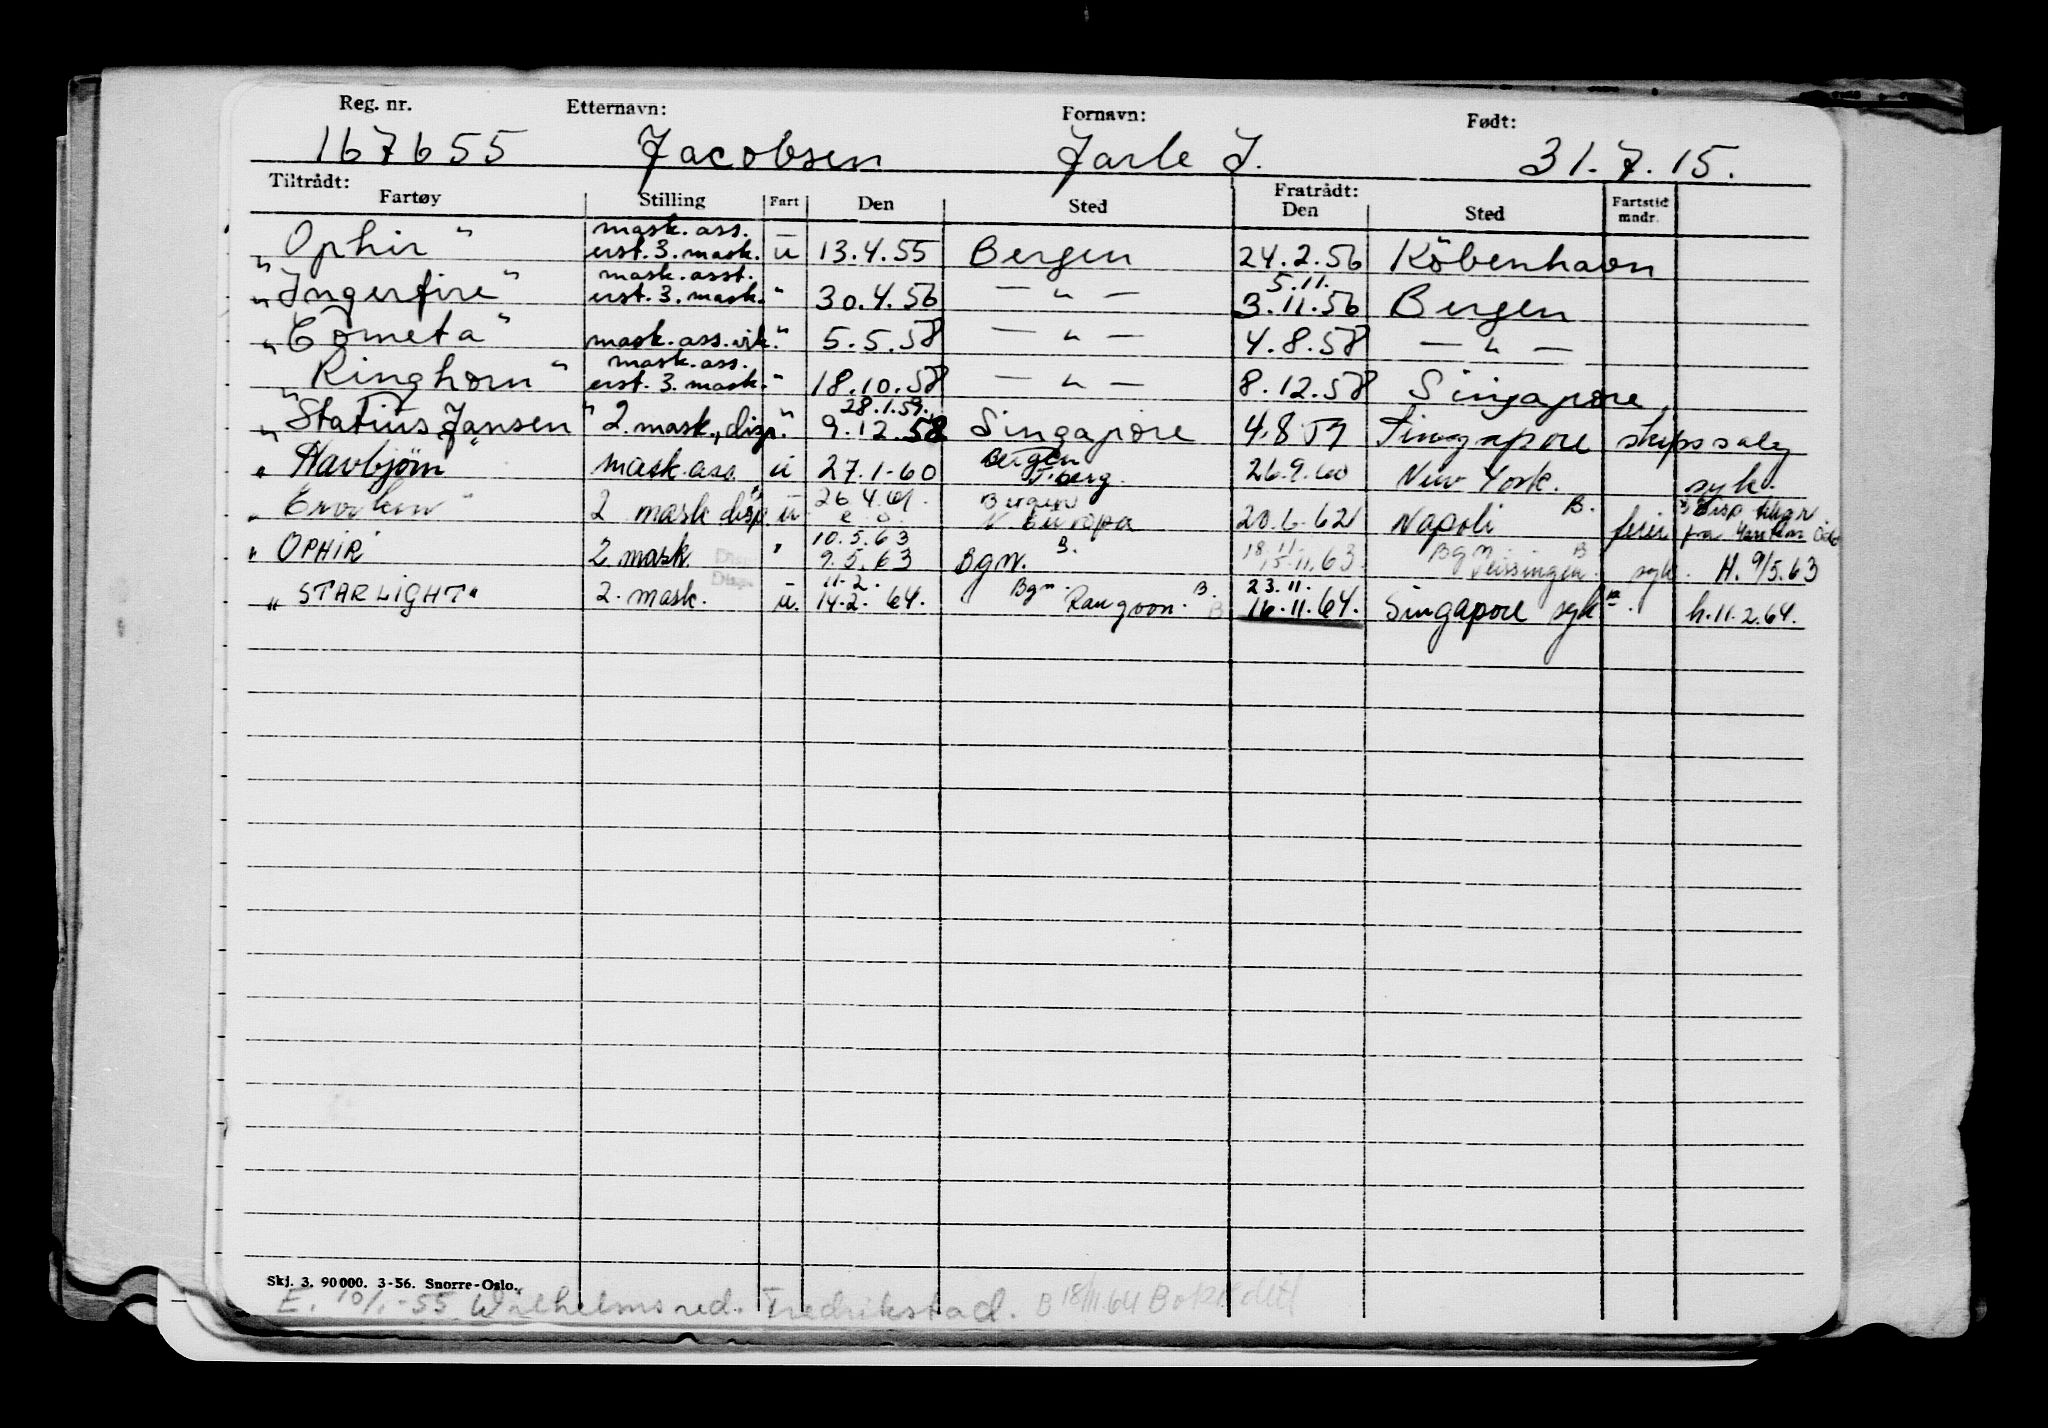 Reg. nr. Etternavn: Fornavn: Født:
167655 Jacobsen Jarle J. 31.7.15.
Tiltrådt: Fratrådt:
Fartøy Stilling Fart Den Sted Den Sted Fartstid mndr.
mask. ass.
"Ophir" erst. 3. mask. u 13.4.55 Bergen 24.2.56 København
mask. asst. 5.11.
"Ingerfire" erst. 3. mask. " 30.4.56 — " — 3.11.56 Bergen
"Cometa" mask. ass. vik. " 5.5.58 — " — 4.8.58 — " —
mask. ass.
"Ringhorn" erst. 3. mask. " 18.10.58 — " — 8.12.58 Singapore
28.1.59.
"Statius Jansen" 2. mask., disp. " 9.12.58 Singapore 4.8 59 Singapore skipssalg
Bergen
"Havbjørn" mask. ass. u 27.1-60 T.berg. 26.9.60 New York. syk.
26.4.61. Bergen B.
2 mask disp u Europa 20.6.62 Napoli ferie
10.5.63 B. 18.11 Bgn B
"OPHIR" 2 mask Disp " 9.5.63 Bgn. 15.11.63. syk. H. 9/5.63
Disp. 11-2. Bgn. B. 23.11.
"STARLIGHT" 2. mask. u. 14.2. 64. Rangoon. B 16.11.64. Singapore syk. h.11.2.64.
Skj. 3. 90000. 3-56. Snorre-Oslo.
E. 10/1-55 Wilhelmsred. Fredrikstad. B 18/11.64